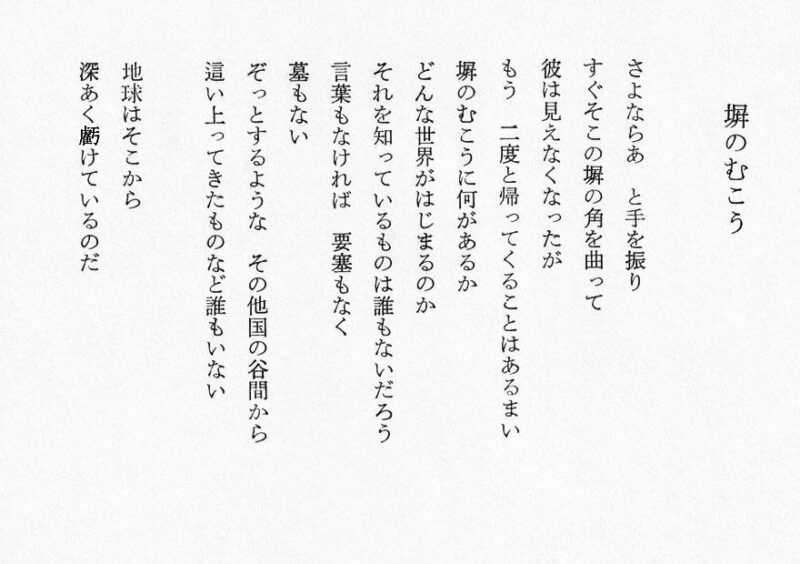 塀のむこう
さよならあ　と手を振り
すぐそこの塀の角を曲って
彼は見えなくなったが
もう　二度と帰ってくることはあるまい
塀のむこうに何があるか
どんな世界がはじまるのか
それを知っているものは誰もないだろう
言葉もなければ　要塞もなく
墓もない
ぞっとするような　その他国の谷間から
這い上ってきたものなど誰もいない
地球はそこから
深あく虧けているのだ